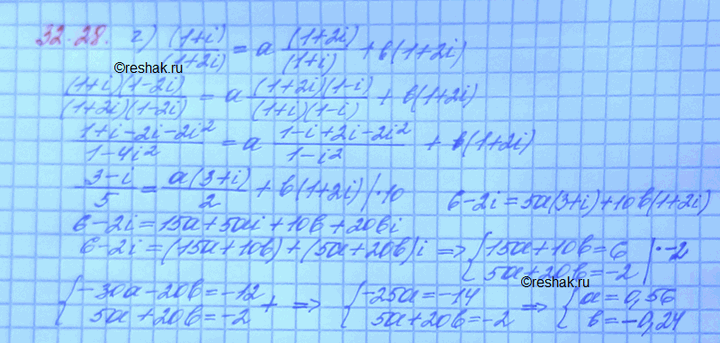 32.28. г) (1+i)/(1+2i) = a (1+2i)/(1+i) + b(1+2i)
©reshak.ru
(1+i)(1-2i)/(1+2i)(1-2i) = a (1+2i)(1-i)/(1+i)(1-i) + b(1+2i)
1+i-2i-2i²/1-4i² = a 1-i+2i-2i²/1-i² + b(1+2i)
3-i/5 = a(3+i)/2 + b(1+2i) |·10 6-2i=5a(3+i)+10b(1+2i)
6-2i=15a+5ai+10b+20bi
6-2i=(15a+10b)+(5a+20b)i => {15a+10b=6 |·-2
5a+20b=-2
{-30a-20b=-12 + => {-25a=-14 => {a=0,56
5a+20b=-2 5a+20b=-2 b=-0,24
©reshak.ru